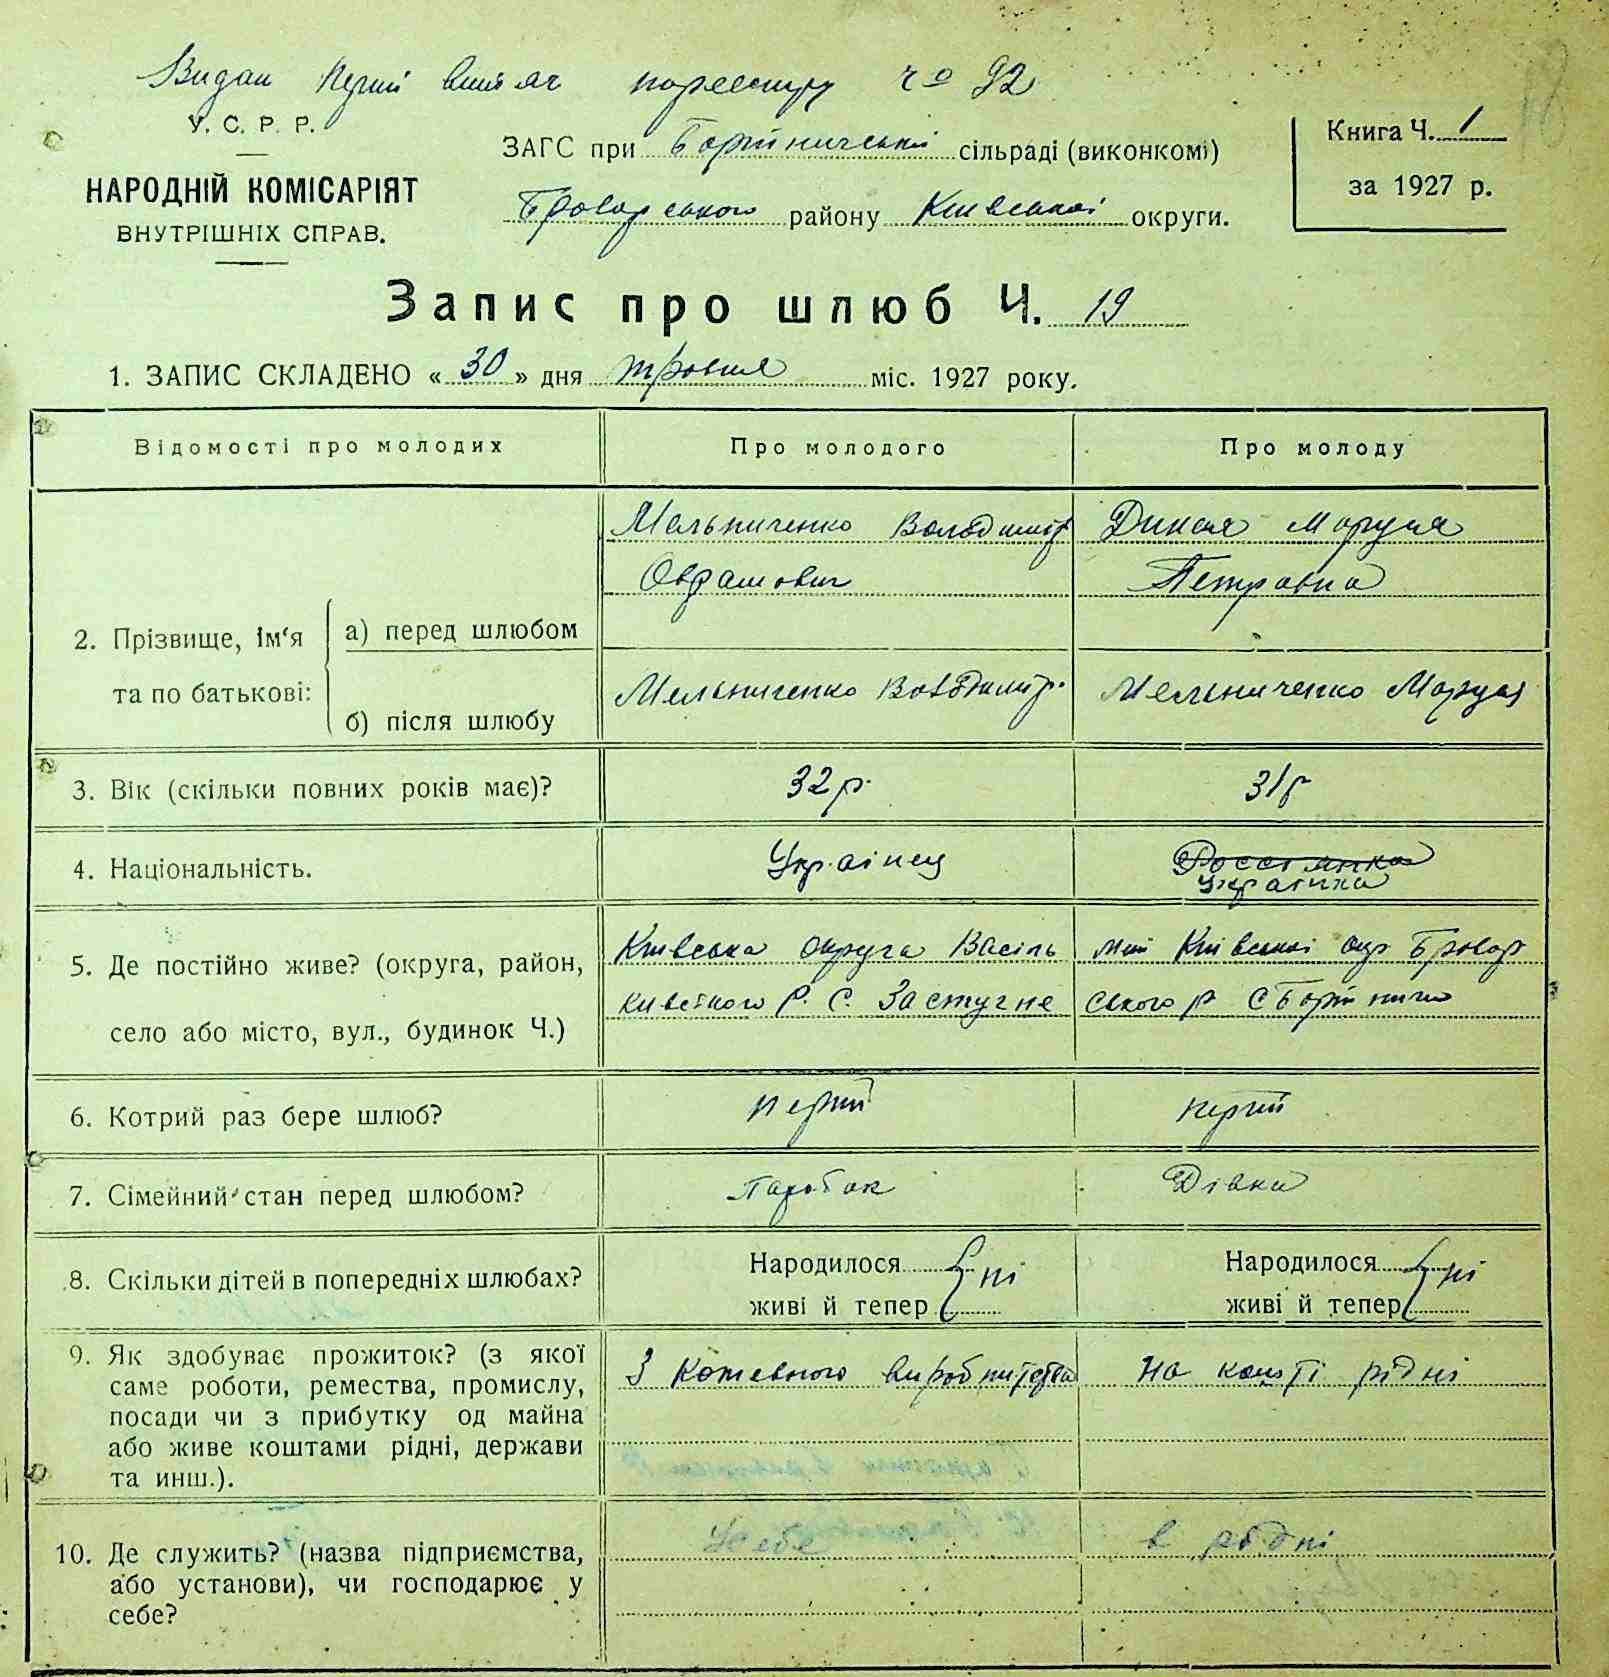 Видан перший витяг пореестру ч⁰ 92
У. С. Р. Р.
НАРОДНІЙ КОМІСАРІЯТ
ВНУТРІШНІХ СПРАВ.
ЗАГС при Бортничській сільраді (виконкомі)
Броварського району Київської округи.
Книга Ч. 1
за 1927 р.
18
Запис про шлюб Ч. 19
1. ЗАПИС СКЛАДЕНО « 30 » дня травня міс. 1927 року.
Відомості про молодих
Про молодого
Про молоду
2. Прізвище, ім'я та по батькові:
а) перед шлюбом
Мельниченко Володимир
Оврамович
Дикая Маруся
Петровна
б) після шлюбу
Мельниченко Володимир.
Мельниченко Маруся
3. Вік (скільки повних років має)?
32 р.
31 р
4. Національність.
Українец
Россіянка
Українка
5. Де постійно живе? (округа, район,
село або місто, вул., будинок Ч.)
Київська округа Васіль
ківского Р. С. Застугне
Київської окр Бровар
ського р С Бортничи
6. Котрий раз бере шлюб?
перший
перший
7. Сімейний стан перед шлюбом?
Паробок
Дівка
8. Скільки дітей в попередніх шлюбах?
Народилося
живі й тепер
ні
Народилося
живі й тепер
ні
9. Як здобуває прожиток? (з якої
саме роботи, ремества, промислу,
посади чи з прибутку од майна
або живе коштами рідні, держави
та инш.).
З кожевного виробництва
На кошті рідні
10. Де служить? (назва підприємства,
або установи), чи господарює у
себе?
У себе
в рідні